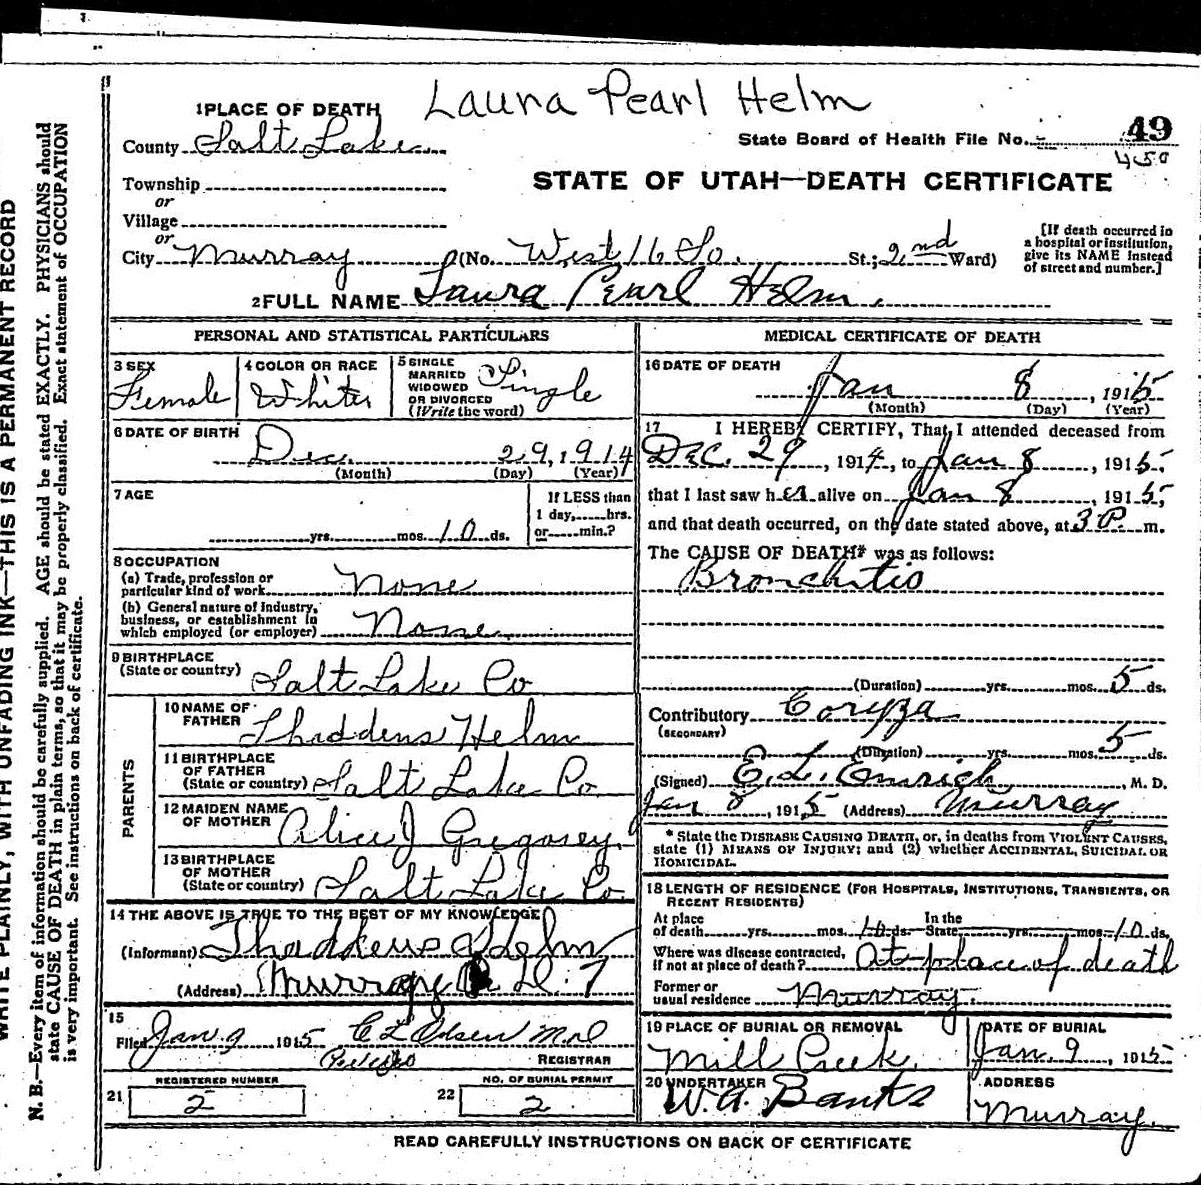 Laura Pearl Helm
1 PLACE OF DEATH
County Salt Lake
State Board of Health File No. 49
450
Township
or
STATE OF UTAH—DEATH CERTIFICATE
Village
or
City Murray (No. West 16 So. St.; 2nd Ward)
[If death occurred in a hospital or institution, give its NAME instead of street and number.]
2 FULL NAME Laura Pearl Helm.
PERSONAL AND STATISTICAL PARTICULARS
3 SEX
Female
4 COLOR OR RACE
White
5 SINGLE
MARRIED
WIDOWED
OR DIVORCED
(Write the word)
Single
6 DATE OF BIRTH
Dec. 29, 1914
(Month) (Day) (Year)
7 AGE
yrs. mos. 10 ds.
If LESS than
1 day, hrs.
or min.?
8 OCCUPATION
(a) Trade, profession or
particular kind of work None
(b) General nature of industry,
business, or establishment in
which employed (or employer) None
9 BIRTHPLACE
(State or country) Salt Lake Co
PARENTS
10 NAME OF
FATHER
Thaddeus Helm
11 BIRTHPLACE
OF FATHER
(State or country) Salt Lake Co.
12 MAIDEN NAME
OF MOTHER Alice J Gregorey.
13 BIRTHPLACE
OF MOTHER
(State or country) Salt Lake Co.
14 THE ABOVE IS TRUE TO THE BEST OF MY KNOWLEDGE
(Informant) Thaddeus Helm
(Address) Murray D. 7
15
Filed Jan. 9 1915 M.D.
REGISTRAR
REGISTERED NUMBER
21 2
NO. OF BURIAL PERMIT
22 2
MEDICAL CERTIFICATE OF DEATH
16 DATE OF DEATH
Jan 8, 1915
(Month) (Day) (Year)
17 I HEREBY CERTIFY, That I attended deceased from
Dec. 29, 1914, to Jan 8, 1915.
that I last saw her alive on Jan 8, 1915,
and that death occurred, on the date stated above, at 3 P m.
The CAUSE OF DEATH* was as follows:
Bronchitis
(Duration) yrs. mos. 5 ds.
Contributory Coryza
(SECONDARY)
(Duration) yrs. mos. 5 ds.
(Signed) E. L. Emrich, M. D.
Jan 8, 1915 (Address) Murray
* State the DISEASE CAUSING DEATH, or, in deaths from VIOLENT CAUSES,
state (1) MEANS OF INJURY; and (2) whether ACCIDENTAL, SUICIDAL OR
HOMICIDAL.
18 LENGTH OF RESIDENCE (FOR HOSPITALS, INSTITUTIONS, TRANSIENTS, OR
RECENT RESIDENTS)
At place
of death yrs. mos. 10 ds. In the
State yrs. mos. 10 ds.
Where was disease contracted,
if not at place of death? At place of death
Former or
usual residence Murray.
19 PLACE OF BURIAL OR REMOVAL
Mill Creek.
DATE OF BURIAL
Jan. 9, 1915
20 UNDERTAKER
W. A. Banks
ADDRESS
Murray.
READ CAREFULLY INSTRUCTIONS ON BACK OF CERTIFICATE
WRITE PLAINLY, WITH UNFADING INK—THIS IS A PERMANENT RECORD
N. B.—Every item of information should be carefully supplied. AGE should be stated EXACTLY. PHYSICIANS should
state CAUSE OF DEATH in plain terms, so that it may be properly classified. Exact statement of OCCUPATION
is very important. See instructions on back of certificate.